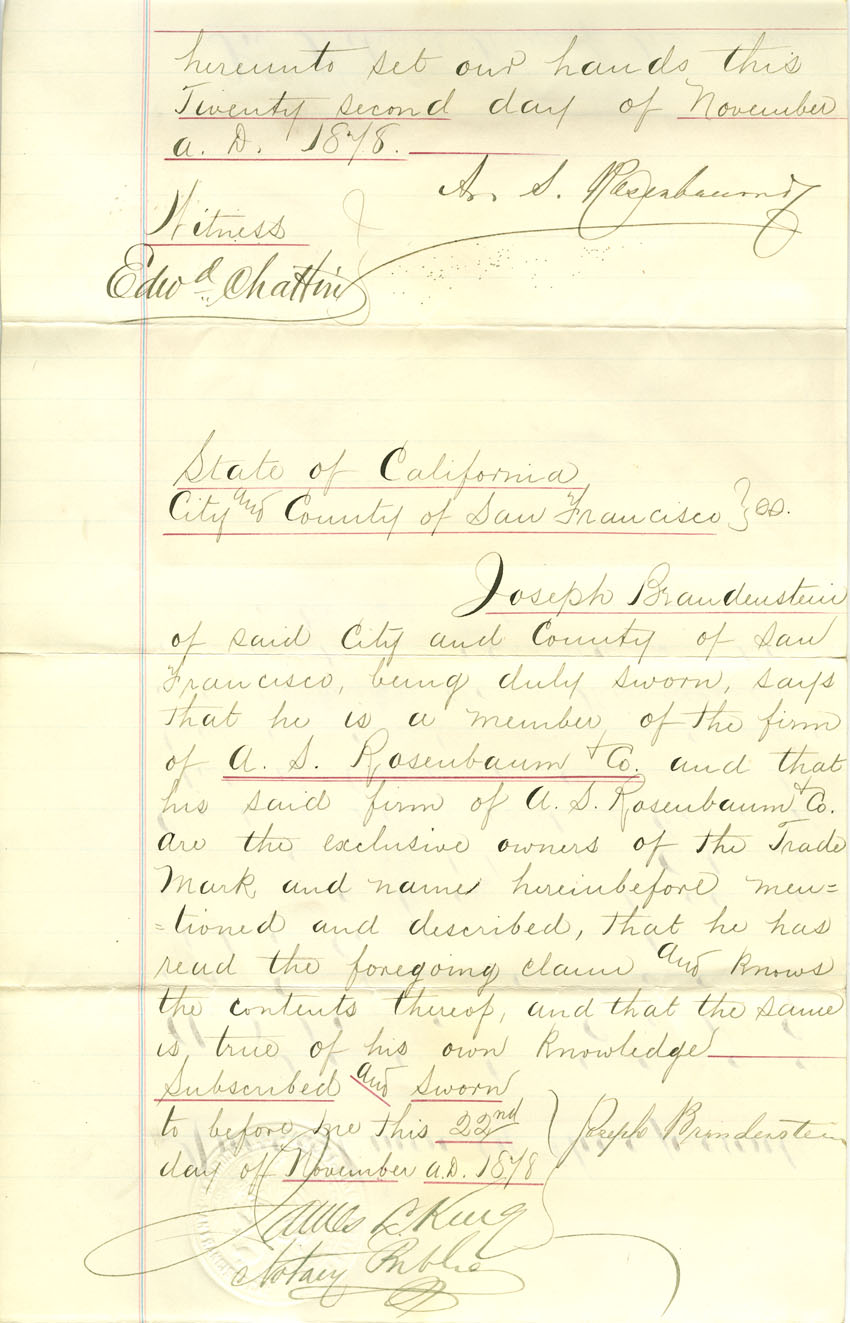 hereunto set our hands this
Twenty second day of November
A. D. 1878.
A. S. Rosenbaum
Witness
Edwd Chattin
State of California
City and County of San Francisco } ss.
Joseph Brandenstein
of said City and County of San
Francisco, being duly sworn, says
that he is a member of the firm
of A. S. Rosenbaum & Co. and that
his said firm of A. S. Rosenbaum & Co.
are the exclusive owners of the Trade
Mark, and name hereinbefore men=
=tioned and described, that he has
read the foregoing claim and knows
the contents thereof, and that the same
is true of his own knowledge
Subscribed and Sworn
to before me this 22nd
day of November A.D. 1878
Joseph Brandenstein
James L. King
Notary Public